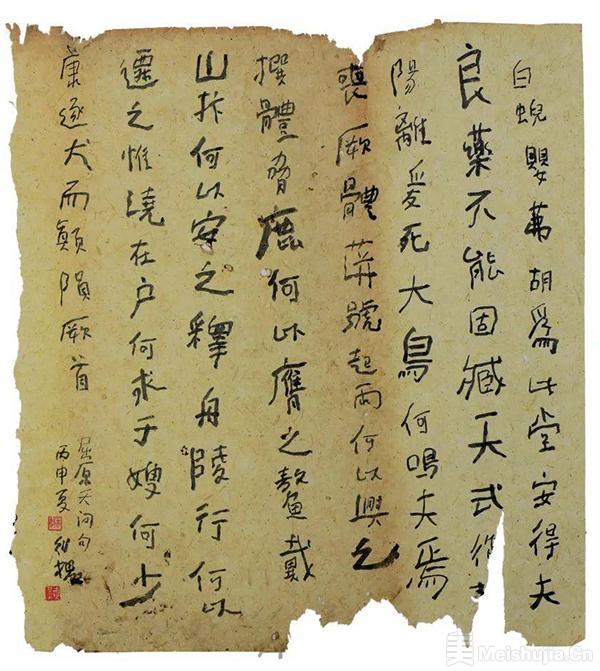 白蜺嬰茀胡爲此堂安得夫
良藥不能固臧天式從
陽離爰死大鳥何鳴夫焉
喪厥體蓱號起雨何以興之
撰體脅鹿何以膺之鼇戴
山抃何以安之釋舟陵行何以
遷之惟澆在户何求于嫂何少
康逐犬而顛隕厥首
屈原天问句
丙申夏
美 Meishujia.Cn